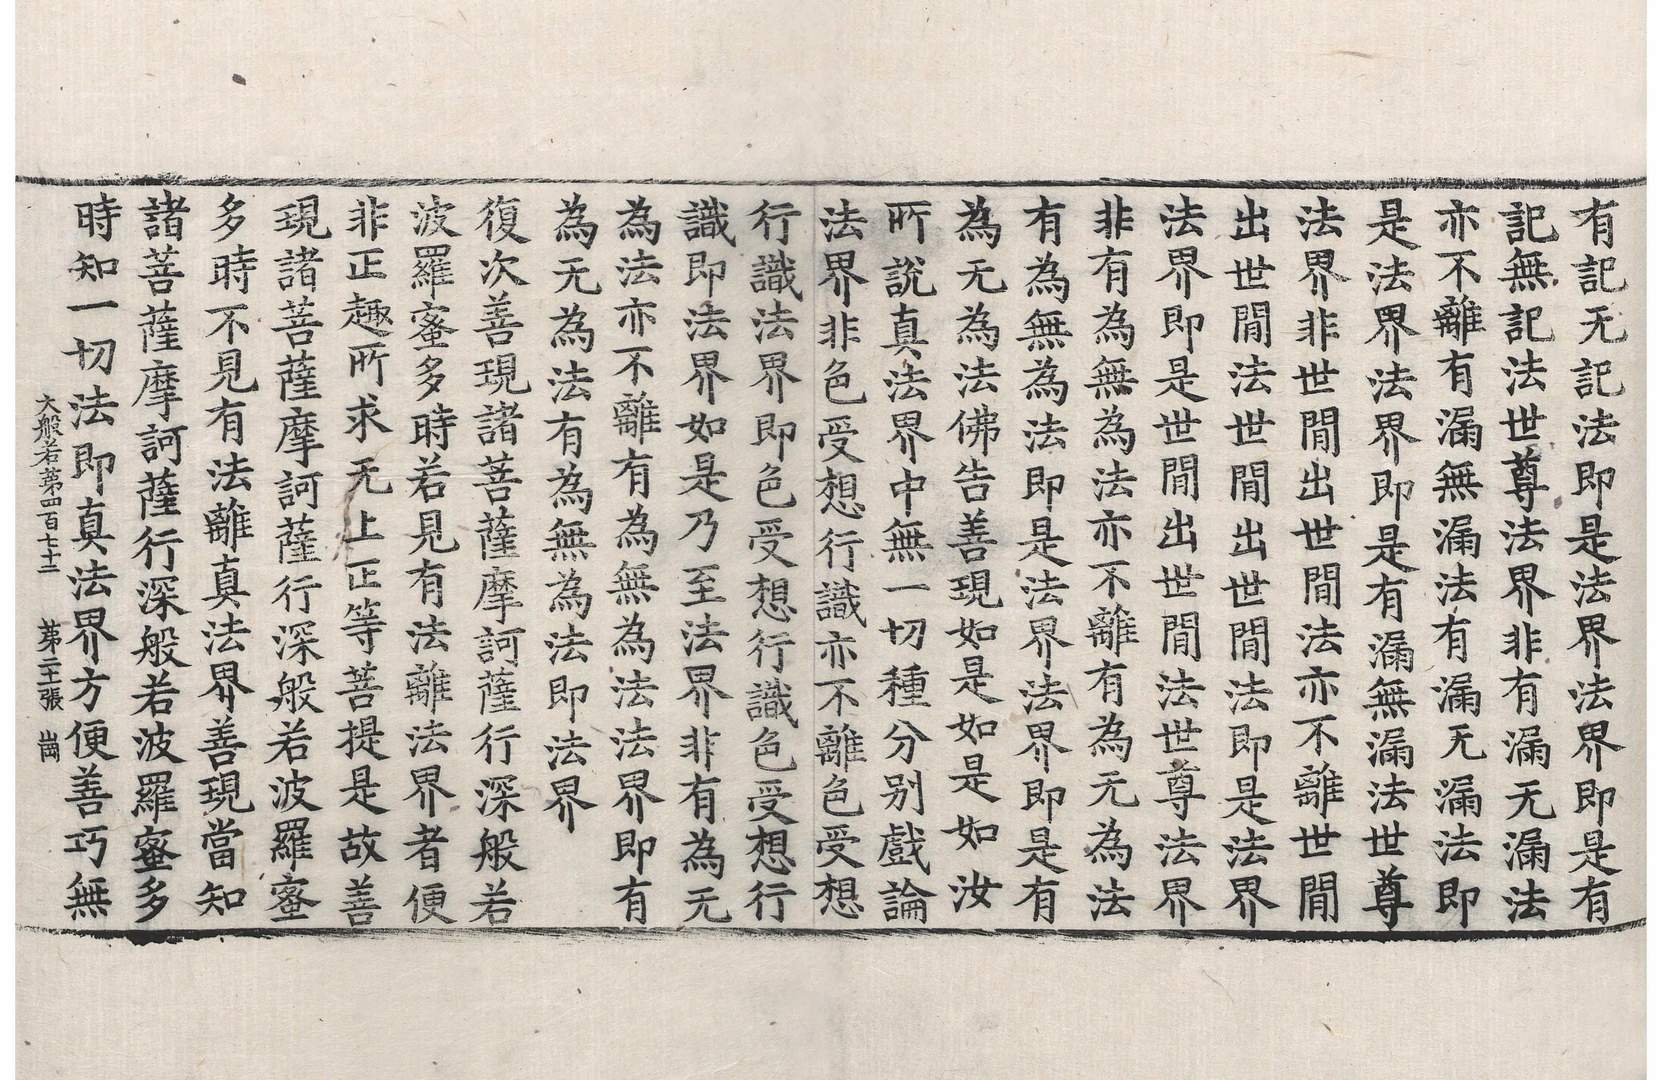 有記无記法即是法界法界即是有
記無記法世尊法界非有漏无漏法
亦不離有漏無漏法有漏无漏法即
是法界法界即是有漏無漏法世尊
法界非世閒出世閒法亦不離世閒
出世閒法世閒出世閒法即是法界
法界即是世閒出世閒法世尊法界
非有為無為法亦不離有為无為法
有為無為法即是法界法界即是有
為无為法佛告善現如是如是如汝
所說真法界中無一切種分別戲論
法界非色受想行識亦不離色受想
行識法界即色受想行識色受想行
識即法界如是乃至法界非有為无
為法亦不離有為無為法法界即有
為无為法有為無為法即法界
復次善現諸菩薩摩訶薩行深般若
波羅蜜多時若見有法離法界者便
非正趣所求无上正等菩提是故善
現諸菩薩摩訶薩行深般若波羅蜜
多時不見有法離真法界善現當知
諸菩薩摩訶薩行深般若波羅蜜多
時知一切法即真法界方便善巧無
大般若第四百七十二 第二十張 崗